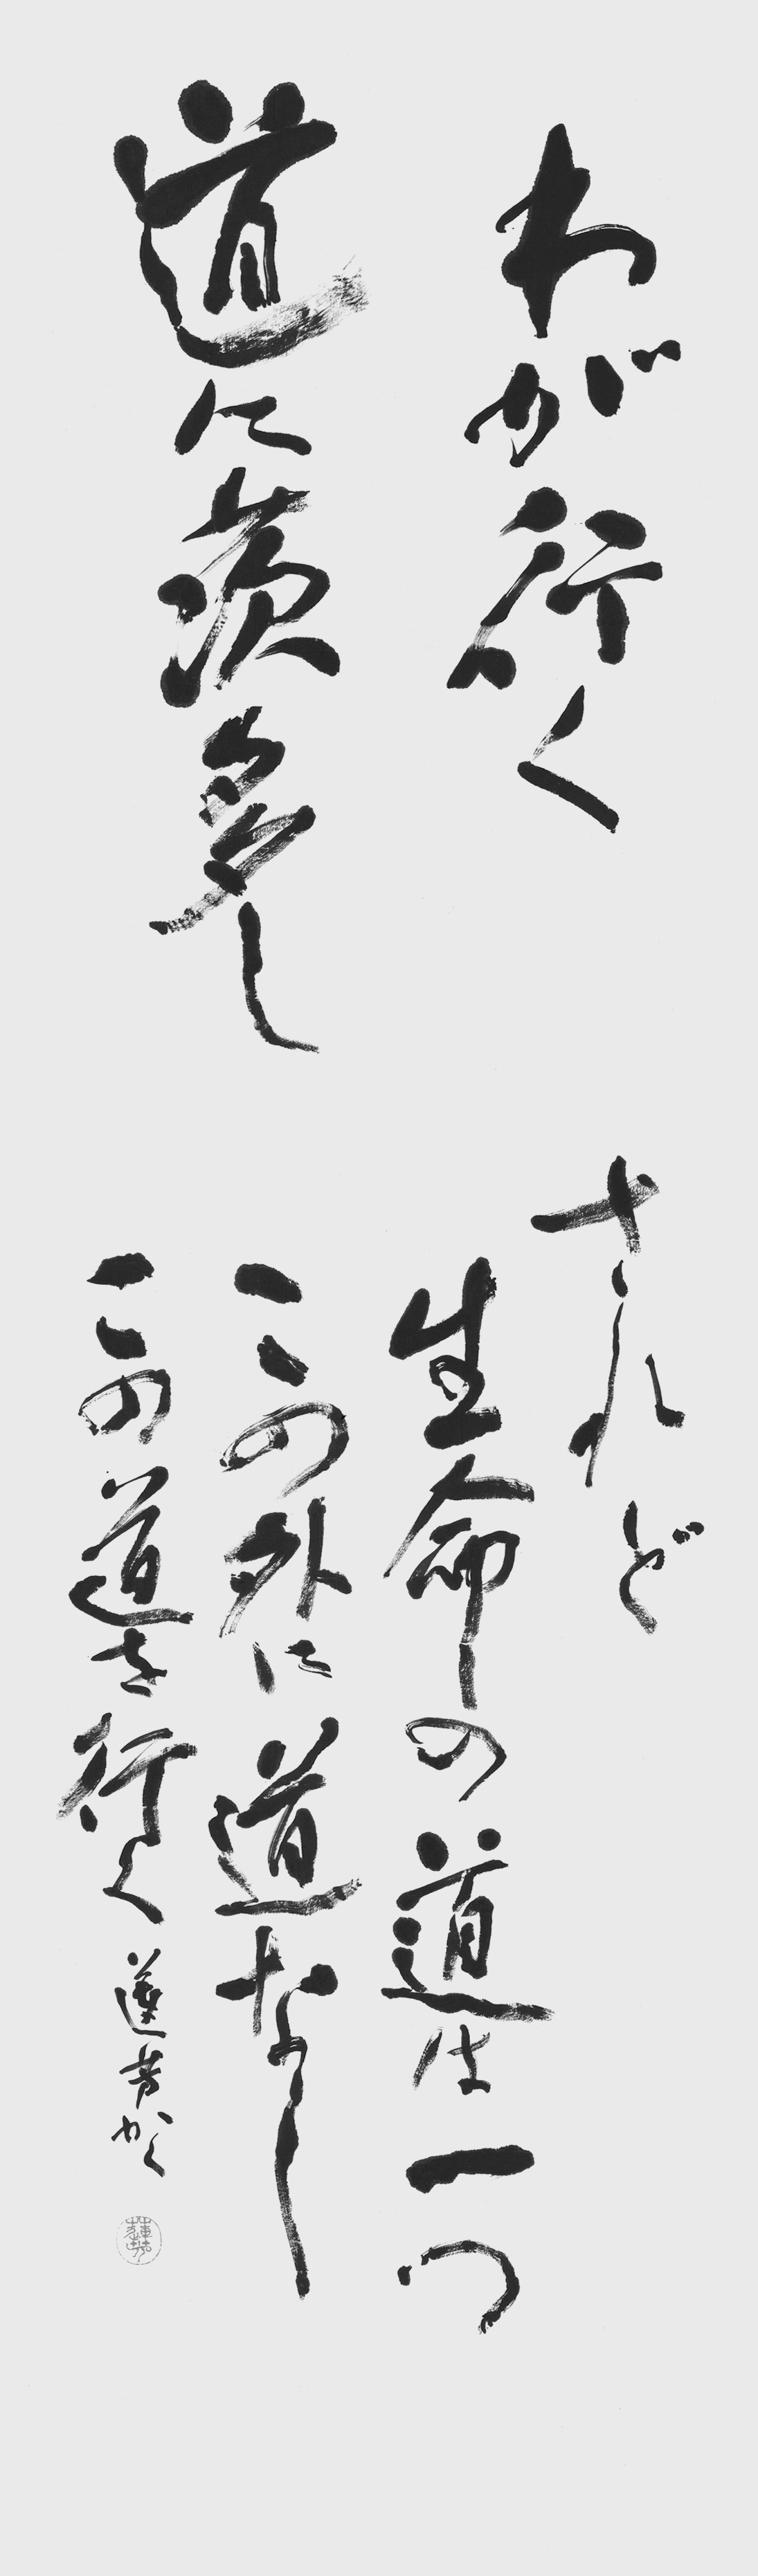 わが行く
道に茨多し
されど
生命の道は一つ
この外に道なし
この道を行く
蓮芳かく